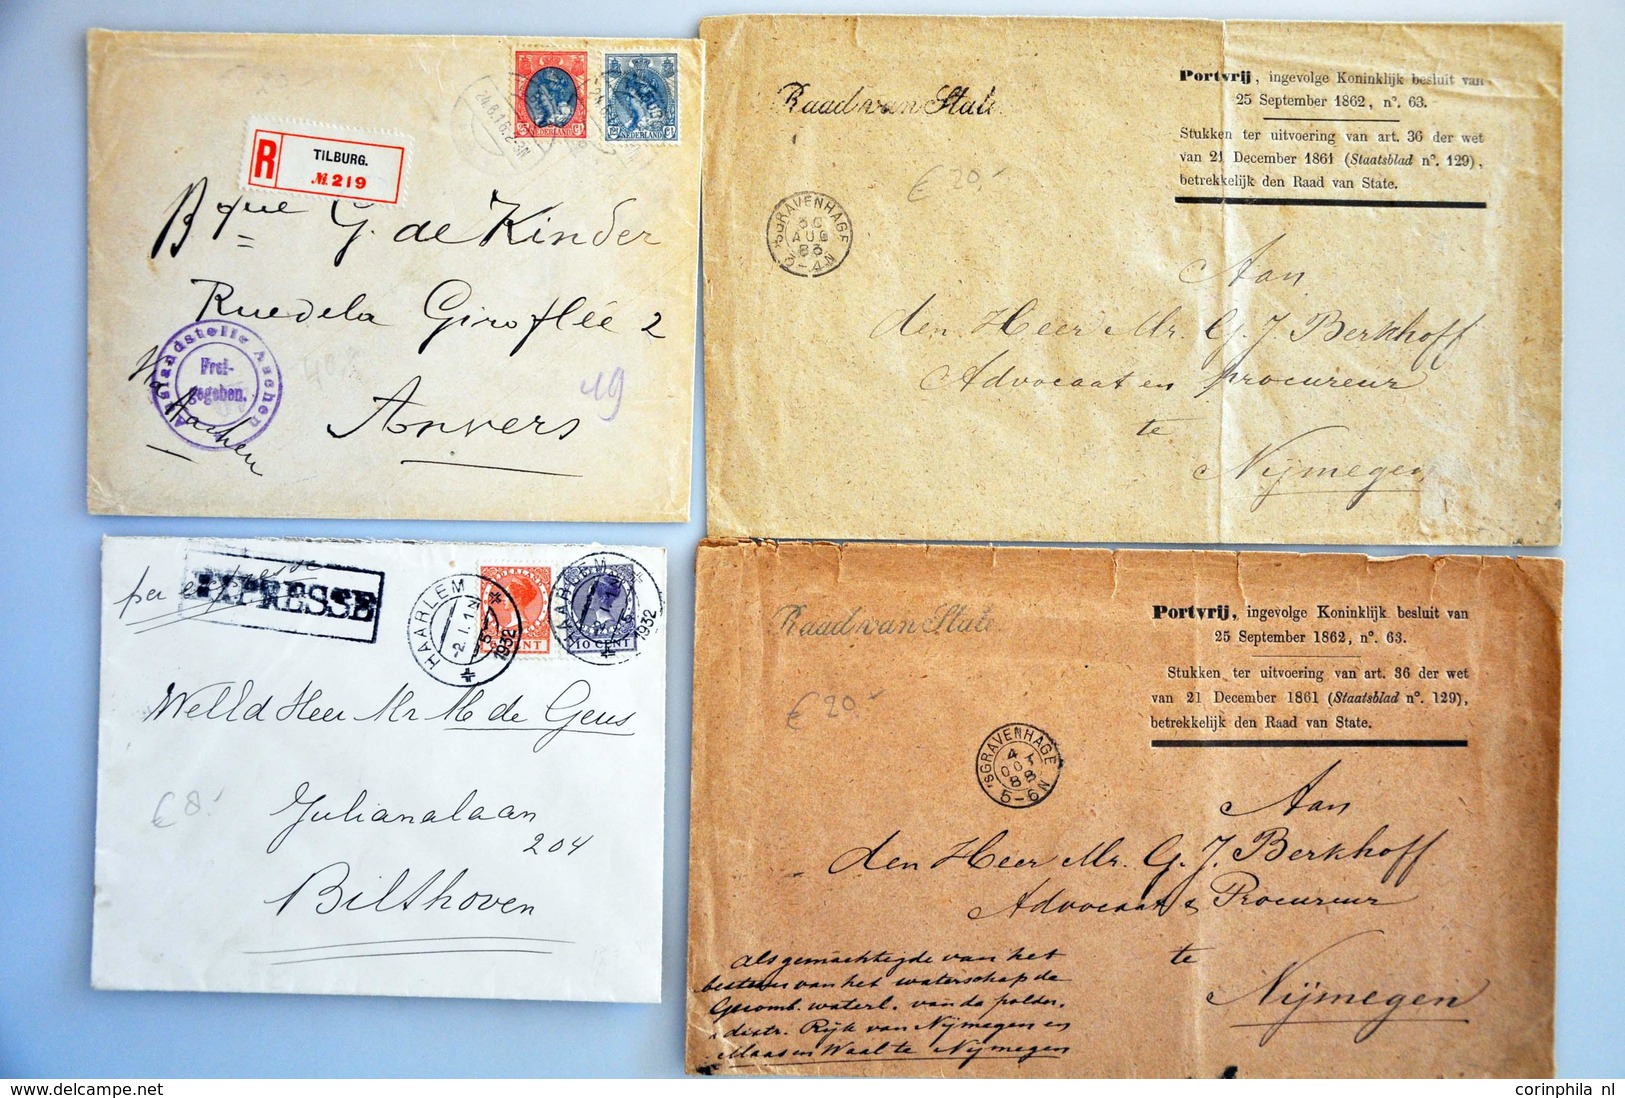 R
TILBURG.
№ 219
NEDERLAND
NEDERLAND
Bque G. de Kinder
Rue de la Giroflée 2
Anvers
Auslandstelle Aachen
Frei-
gegeben.
Aachen
19
Raad van State
Portvrij, ingevolge Koninklijk besluit van
25 September 1862, n°. 63.
Stukken ter uitvoering van art. 36 der wet
van 21 December 1861 (Staatsblad n°. 129),
betrekkelijk den Raad van State.
€ 20.-
'SGRAVENHAGE
30
AUG
83
3-4N
Aan
den Heer Mr. G. J. Berkhoff
Advocaat en procureur
te
Nijmegen
per expresse
EXPRESSE
HAARLEM
2.I.1N
1932
HAARLEM
1932
CENT
10 CENT
WelEd Heer Mr M de Geus
Julianalaan
204
Bilthoven
€ 8.-
Raad van State
Portvrij, ingevolge Koninklijk besluit van
25 September 1862, n°. 63.
Stukken ter uitvoering van art. 36 der wet
van 21 December 1861 (Staatsblad n°. 129),
betrekkelijk den Raad van State.
€ 20.-
'SGRAVENHAGE
4
OCT
88
5-6N
Aan
den Heer Mr. G. J. Berkhoff
Advocaat & Procureur
te
Nijmegen
Als gemachtigde van het
bestuur van het waterschap de
Gecomb. waterl. van de polder.
distr. Rijk van Nijmegen en
Maas en Waal te Nijmegen
www.delcampe.net
corinphila nl